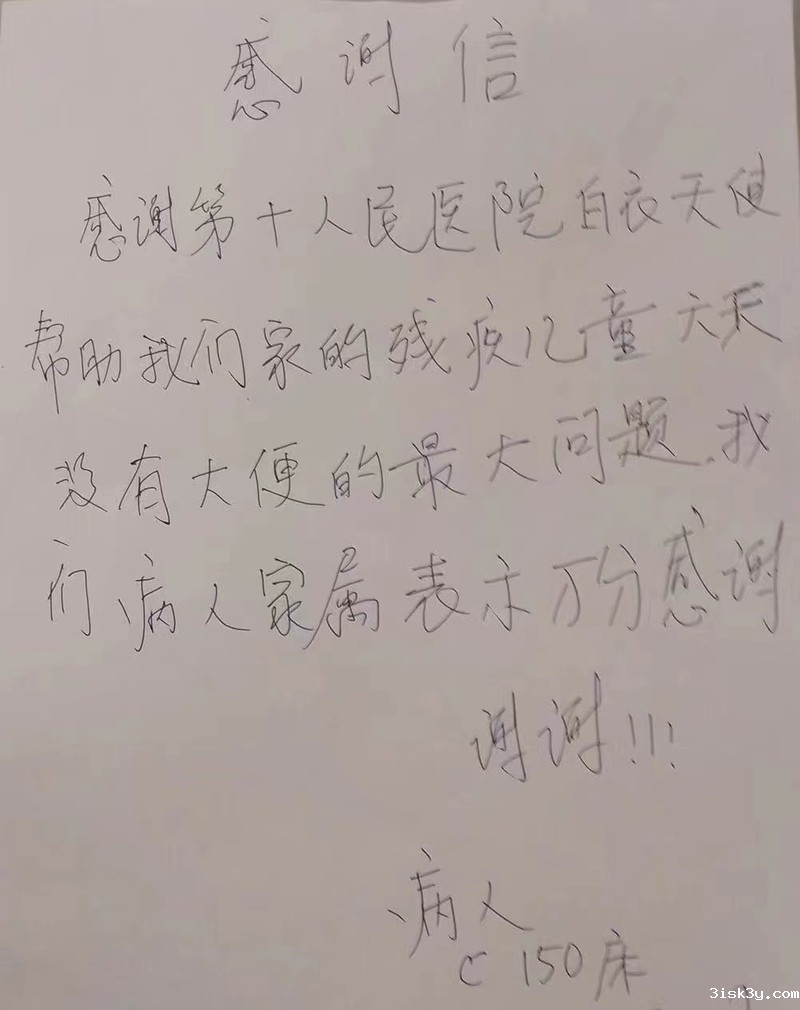 感谢信
感谢第十人民医院白衣天使
帮助我们家的残疾儿童六天
没有大便的最大问题.我
们病人家属表示万分感谢
谢谢!!!
病人
C 150床
3isk3y.com